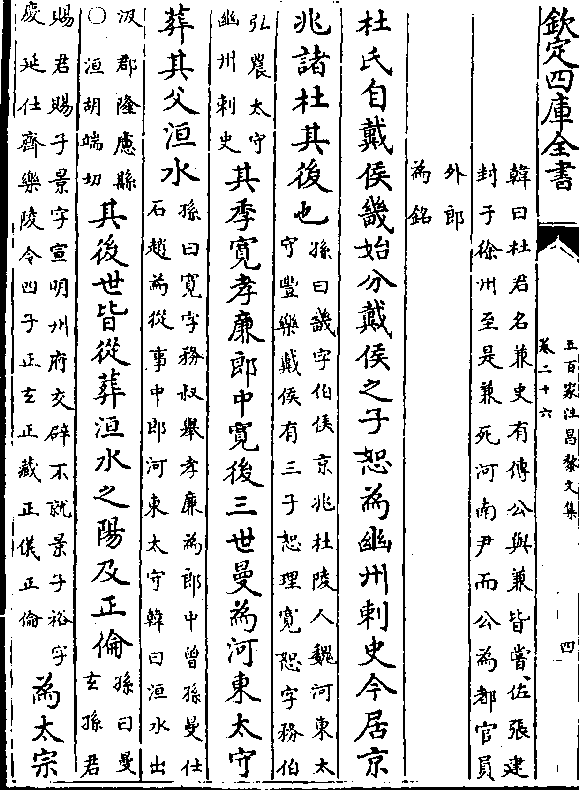 欽定四庫全書
五百家注昌黎文集
卷二十六
四
韓曰杜君名兼史有傳公與兼皆嘗佐張建
封于徐州至是兼死河南尹而公為都官員
外郎
為銘
杜氏自戴侯畿始分戴侯之子恕為幽州刺史今居京
兆諸杜其後也
孫曰畿字伯侯京兆杜陵人魏河東太
守豐樂戴侯有三子恕理寛恕字務伯
弘農太守
幽州刺史
其季寛孝廉郎中寛後三世曼為河東太守
葬其父洹水
孫曰寛字務叔舉孝廉為郎中曽孫曼仕
石趙為從事中郎河東太守韓曰洹水出
汲郡隆慮縣
○洹胡端切
其後世皆從葬洹水之陽及正倫
孫曰曼
玄孫君
賜君賜子景字宣明州府交辟不就景子裕字
慶延仕齊樂陵令四子正玄正藏正儀正倫
為太宗